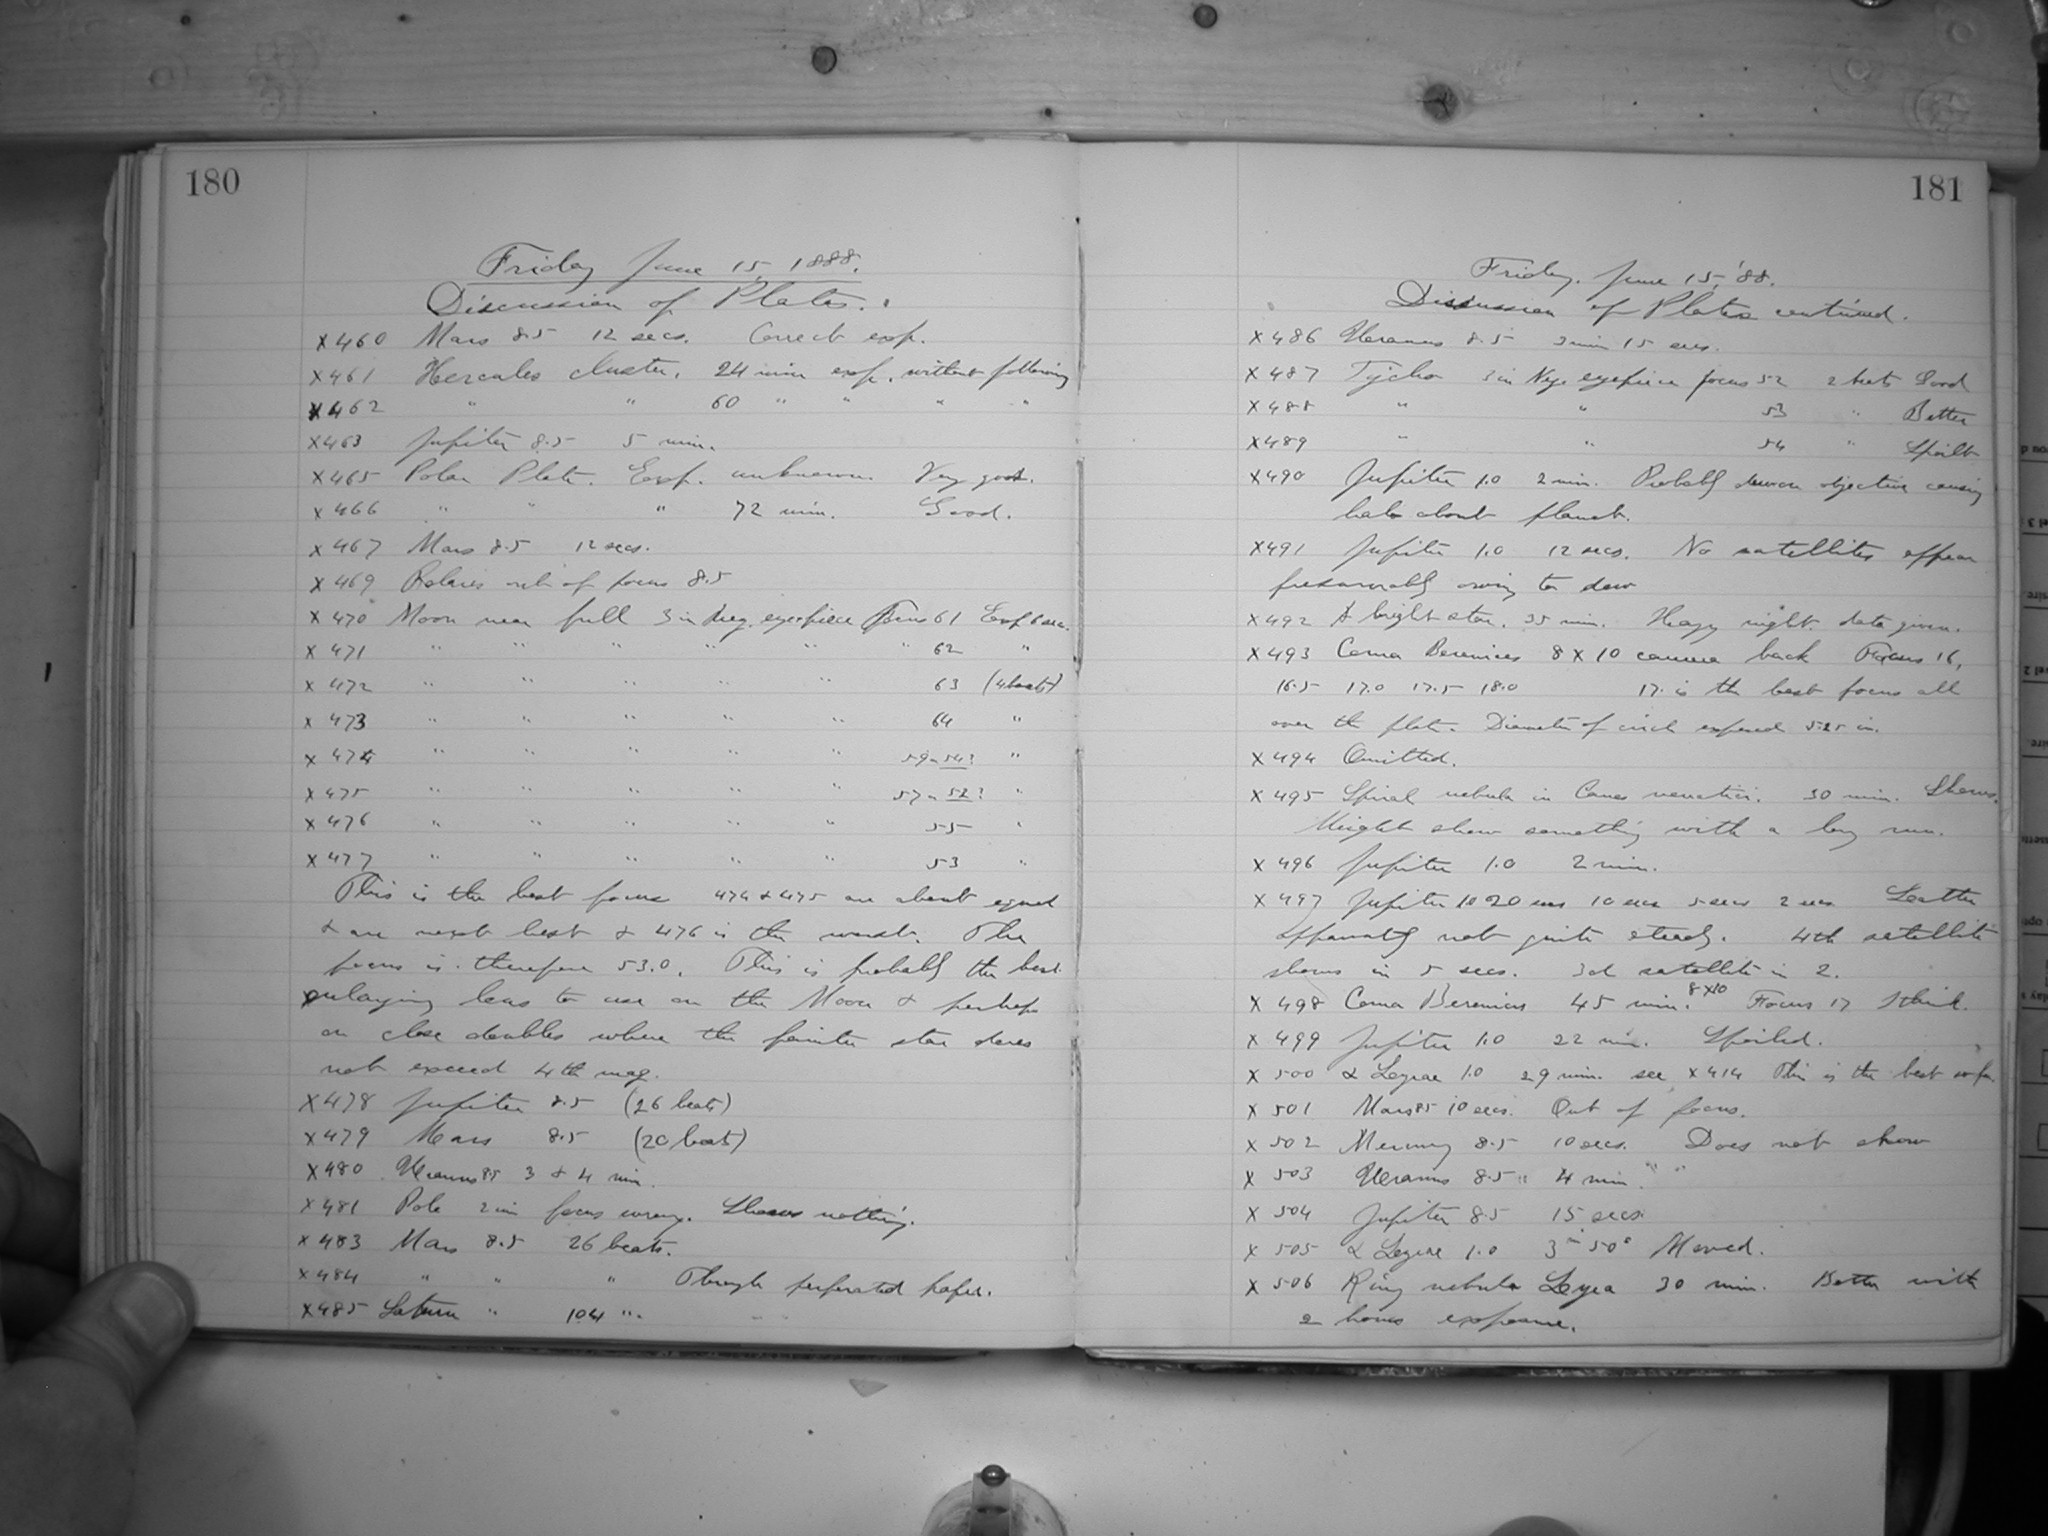 180
Friday June 15, 1888.
Discussion of Plates.
X460 Mars 8.5 12 secs. Correct exp.
X461 Hercules cluster. 24 min exp. without following
X462 " " 60 " " " "
X463 Jupiter 8.5 5 min.
X465 Polar Plate. Exp. unknown. Very good.
X466 " " " 72 min. Good.
X467 Mars 8.5 12 secs.
X469 Polaris out of focus 8.5
X470 Moon near full 3 in Neg. eyepiece Focus 61 Exp 6 sec.
X471 " " " " " " 62 "
X472 " " " " " 63 (4 beats)
X473 " " " " " 64 "
X474 " " " " " 59 - 54? "
X475 " " " " " 57 - 52? "
X476 " " " " " 55 "
X477 " " " " " 53 "
This is the best focus 474 & 475 are about equal
& are next best & 476 is the worst. The
focus is therefore 53.0. This is probably the best
enlarging lens to use on the Moon & perhaps
on close doubles where the fainter star does
not exceed 4th mag.
X478 Jupiter 8.5 (26 beats)
X479 Mars 8.5 (20 beats)
X480 Uranus 8.5 3 & 4 min.
X481 Pole 2 in focus wrong. Shows nothing.
X483 Mars 8.5 26 beats.
X484 " " " Through perforated paper.
X485 Saturn " 104 " " "
181
Friday. June 15, '88.
Discussion of Plates continued.
X486 Uranus 8.5 3 min 15 secs.
X487 Tycho 3 in Neg. eyepiece focus 52 2 beats Good
X488 " " 53 " Better
X489 " " 54 " Spoilt
X490 Jupiter 1.0 2 min. Probably dew on objective causing
halo about planet.
X491 Jupiter 1.0 12 secs. No satellites appear
presumably owing to dew
X492 A bright star. 35 min. Hazy night. data given.
X493 Coma Berenices 8 X 10 camera back Focus 16,
16.5 17.0 17.5 18.0 17. is the best focus all
over the plate. Diameter of circle exposed 5.25 in.
X494 Omitted.
X495 Spiral nebula in Canes venatici. 30 min. Shows.
Might show something with a long run.
X496 Jupiter 1.0 2 min.
X497 Jupiter 1.0 20 secs 10 secs 5 secs 2 secs
apparently not quite steady. 4th satellite
shows in 5 secs. 3d satellite in 2.
X498 Coma Berenices 45 min. 8 X 10 Focus 17 I think.
X499 Jupiter 1.0 22 min. Spoiled.
X500 α Lyrae 1.0 29 min. see X414 This is the best so far.
X501 Mars 8.5 10 secs. Out of focus.
X502 Mercury 8.5 10 secs. Does not show
X503 Uranus 8.5 " 4 min. " "
X504 Jupiter 8.5 15 secs.
X505 α Lyrae 1.0 3m 50s Moved.
X506 Ring nebula Lyra 30 min. Better with
2 hours exposure.